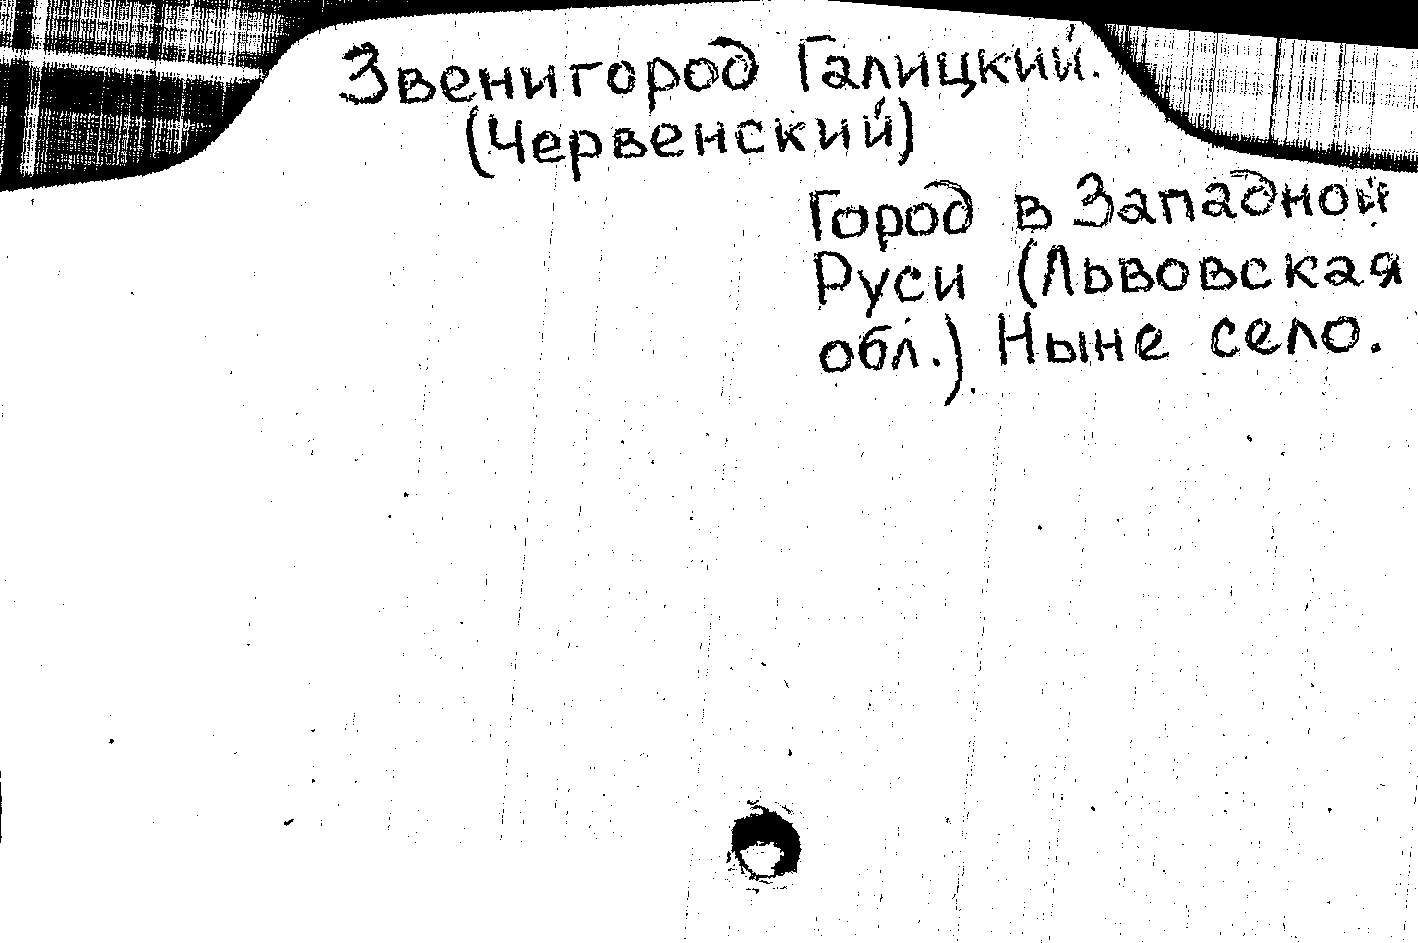 Звенигород Галицкий.
(Червенский)
Город в Западной
Руси (Львовская
обл.). Ныне село.